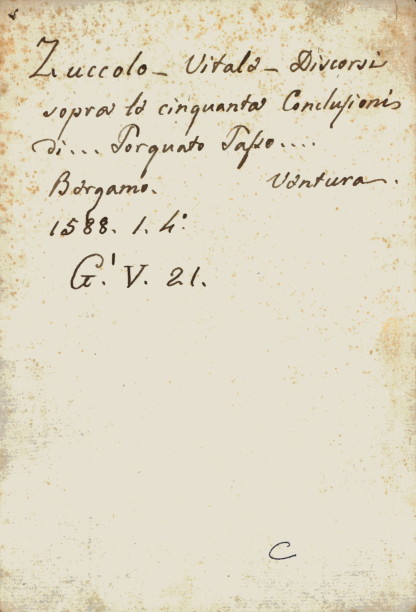 Zuccolo - Vitale - Discorsi
sopra le cinquanta Conclusioni
di... Torquato Tasso....
Bergamo. Ventura.
1588. 1. 4°
G.' V. 21.
C